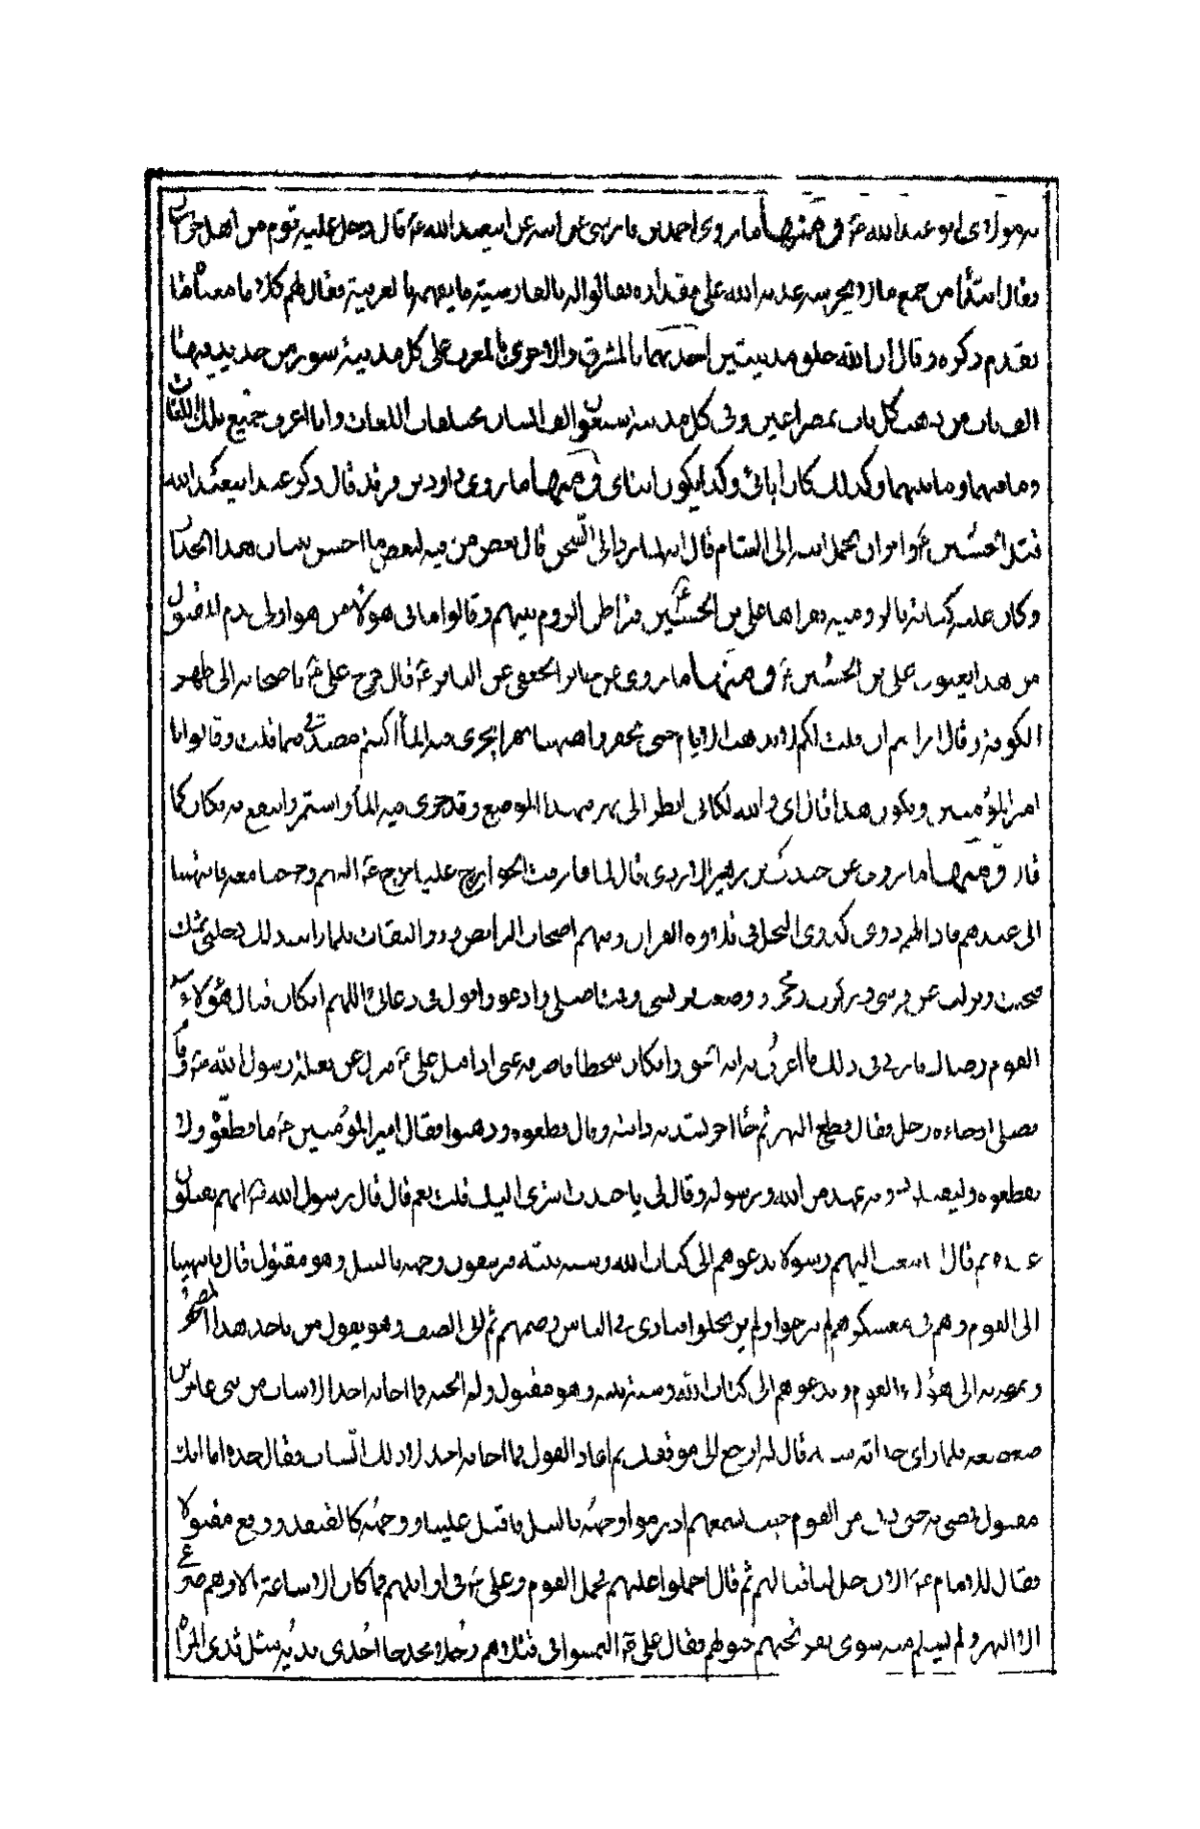 ابو عبد الله ع و منها ما روى احمد بن فارس عن ابيه عن ابي عبد الله ع قال دخل عليه قوم من اهل خراسان
فقال ابتداء من جمع مالا يحرسه عذبه الله على مقداره فقالوا له بالفارسية ما نفهم بالعربية فقال لهم كلاما معناه ما
تقدم ذكره و قال ان الله خلق مدينتين احديهما بالمشرق والاخرى بالمغرب على كل مدينة سور من حديد فيها
الف باب من ذهب كل باب بمصراعين وفي كل مدينة سبعون الف لسان مختلفات اللغات وانا اعرف جميع تلك اللغات
وما فيهما وما بينهما وكذلك كان ابائي وكذا يكون ابنائي و منها ما روى داود بن فرقد قال ذكر عند ابي عبد الله
قتل الحسين ع وامر ان يحمل ابنه الى الشام قال انه لما رد الى السجن قال بعض من فيه لبعض ما احسن بنيان هذا الجدار
وكان عليه كتابة بالرومية فقراها علي بن الحسين ع فتراطن الروم بينهم وقالوا ما في هؤلاء من هو اولى بدم المقتول
من هذا يعنون علي بن الحسين ع و منها ما روى عن جابر الجعفي عن الباقر ع قال خرج علي ع باصحابه الى ظهر
الكوفة وقال ارايتم ان قلت لكم لا تذهب الايام حتى يحفر هاهنا نهر يجري فيه الماء اكنتم مصدقي فيما قلت وقالوا يا
امير المؤمنين ويكون هذا قال اي والله لكاني انظر الى نهر بهذا الموضع وقد جرى فيه الماء واستمر وانتفع به فكان كما
قال و منها ما روى عن جندب بن زهير الازدي قال لما فارقت الخوارج عليا خرج ع اليهم وخرجنا معه فانتهينا
الى عسكرهم فاذا لهم دوى كدوى النحل في تلاوة القران وفيهم اصحاب البرانس وذوو الثفنات فلما رايت ذلك دخلني شك
فتنحيت ونزلت عن فرسي وركزت رمحي ووضعت ترسي وقمت اصلي وادعو واقول في دعائي اللهم ان كان قتال هؤلاء
القوم رضا لك فارني في ذلك ما اعرف به انه الحق وان كان سخطا فاصرفه عني اذ اقبل علي ع فنزل عن بغلة رسول الله ص وقام
فصلى اذ جاءه رجل فقال قطع النهر ثم جاء اخر يشتد به دابته وقال قطعوه وذهبوا فقال امير المؤمنين ع ما قطعوه ولا
يقطعوه وليقتلن دونه عهد من الله ورسوله وقال لي يا جندب ترى التل قلت نعم قال قال رسول الله ص انهم يقتلون
عنده ثم قال انا نبعث اليهم رسولا يدعوهم الى كتاب الله وسنة نبيه فيرشقون وجهه بالنبل وهو مقتول قال فانتهينا
الى القوم وهم في معسكرهم لم يبرحوا ولم يرتحلوا فنادى في الناس وضمهم ثم اتى الصف وهو يقول من ياخذ هذا المصحف
ويمضي به الى هؤلاء القوم ويدعوهم الى كتاب الله وسنة نبيه وهو مقتول وله الجنة فما اجابه احد الا شاب من بني عامر بن
صعصعة فلما راى حداثة سنه قال له ارجع الى موقفك ثم اعاد القول فما اجابه احد الا ذلك الشاب فقال خذه اما انك
مقتول فمضى به حتى دنا من القوم حيث يسمعهم اذ رموا وجهه بالنبل فاقبل علينا ووجهه كالقنفذ ووقع مقتولا
فقال للامام ع الان حل لنا قتالهم ثم قال احملوا عليهم فحمل القوم وعلي ع في اوائلهم فما كان الا ساعة الا وهم صرعى
الا النهر ولم يسلم منه سوى نفر تحتهم خيولهم فقال علي ع التمسوا في قتلاهم رجلا مخدجا احدى يديه مثل ثدي المراة